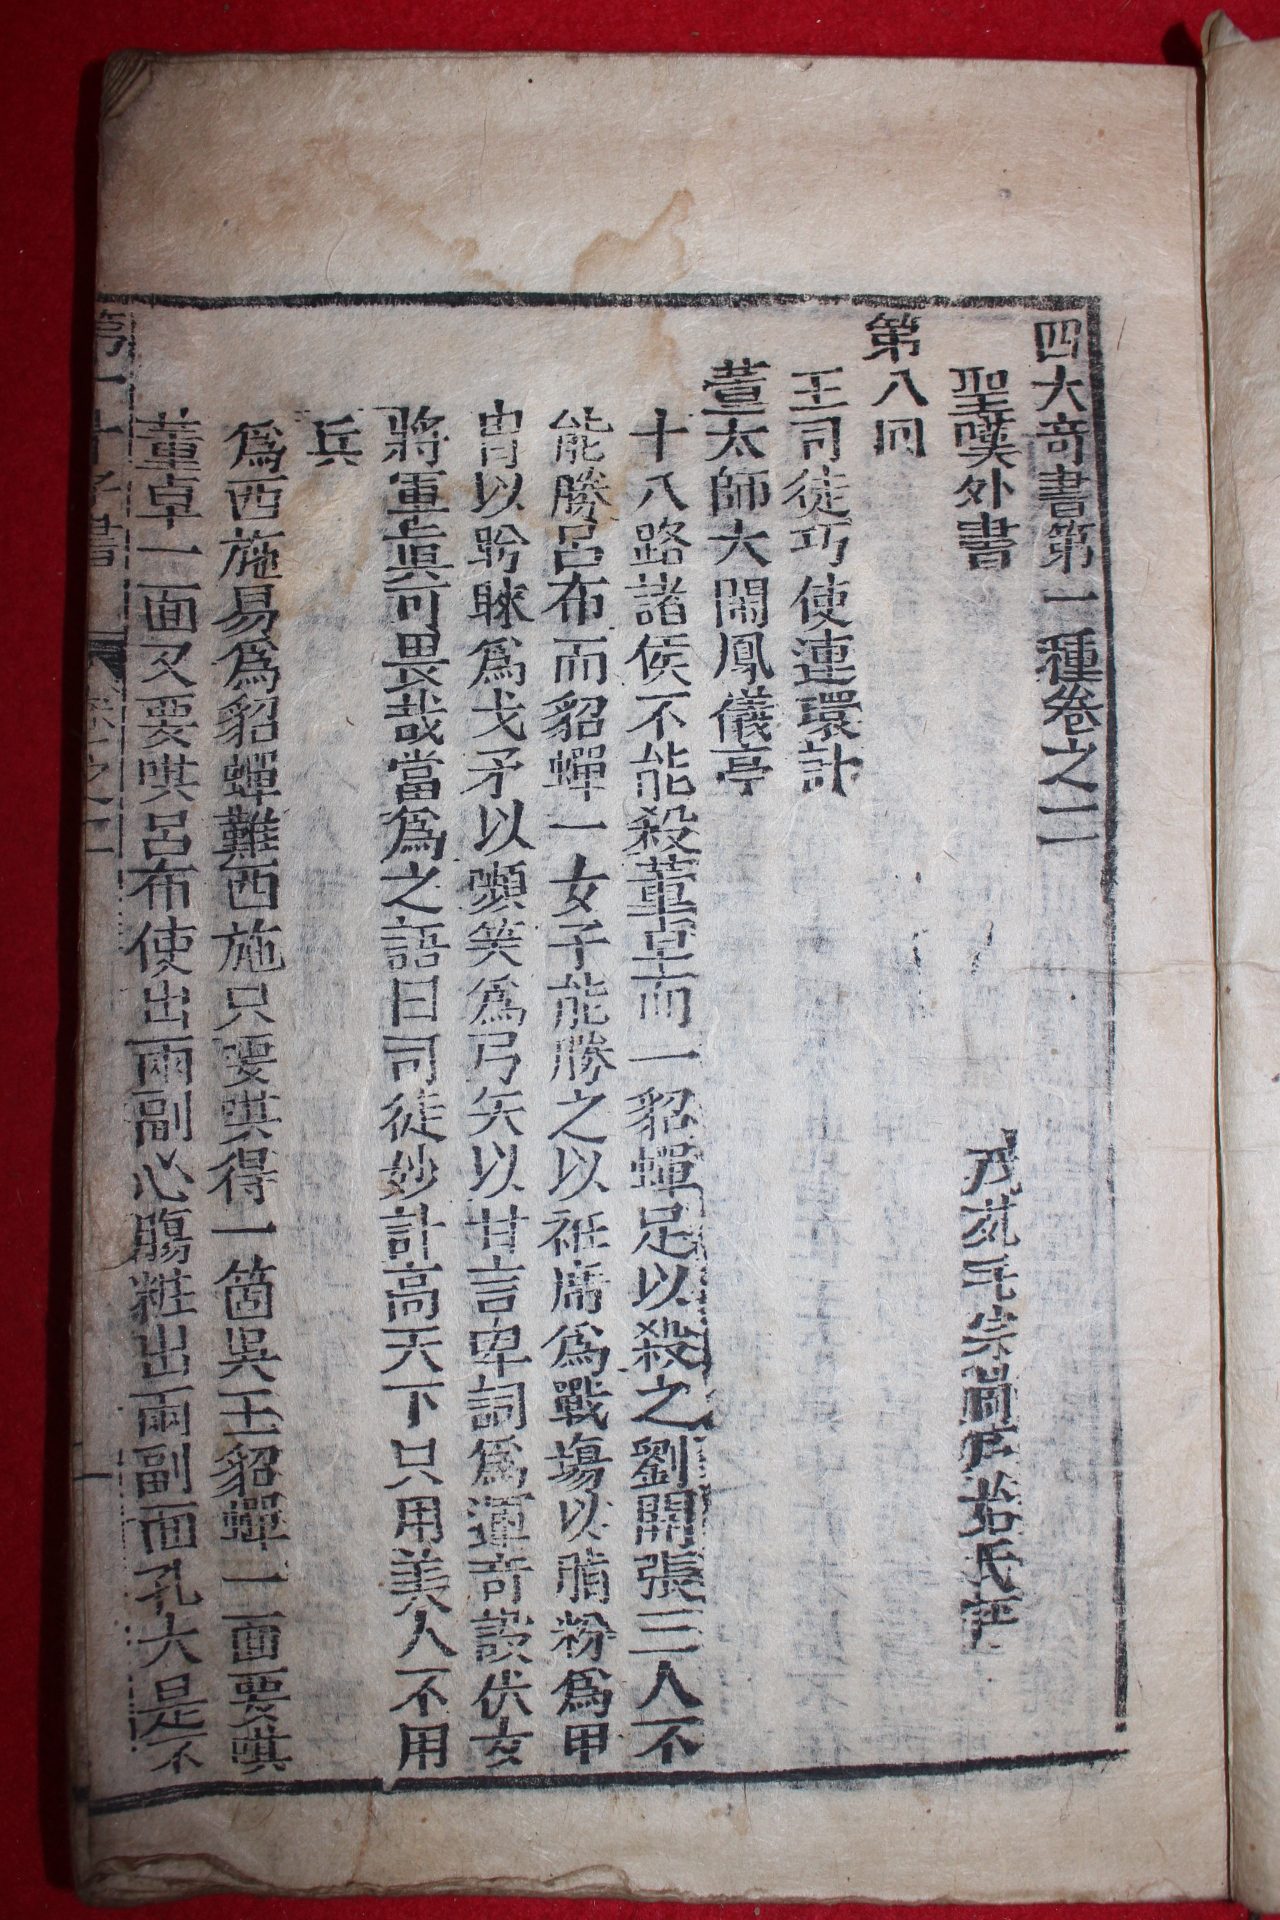 四大奇書第一種卷之二
聖嘆外書　茂苑毛宗崗序始氏評
第八回
王司徒巧使連環計
董太師大閙鳳儀亭
十八路諸侯不能殺董卓而一貂蟬足以殺之劉關張三人不
能勝呂布而貂蟬一女子能勝之以衽席爲戰塲以脂粉爲甲
冑以盻睞爲戈矛以嚬笑爲弓矢以甘言卑詞爲運奇設伏女
將軍眞可畏哉當爲之語曰司徒妙計高天下只用美人不用
兵
爲西施易爲貂蟬難西施只要哄得一箇吳王貂蟬一面要哄
董卓一面又要哄呂布使出兩副心膓粧出兩副面孔大是不
第一才子書　卷之二　一